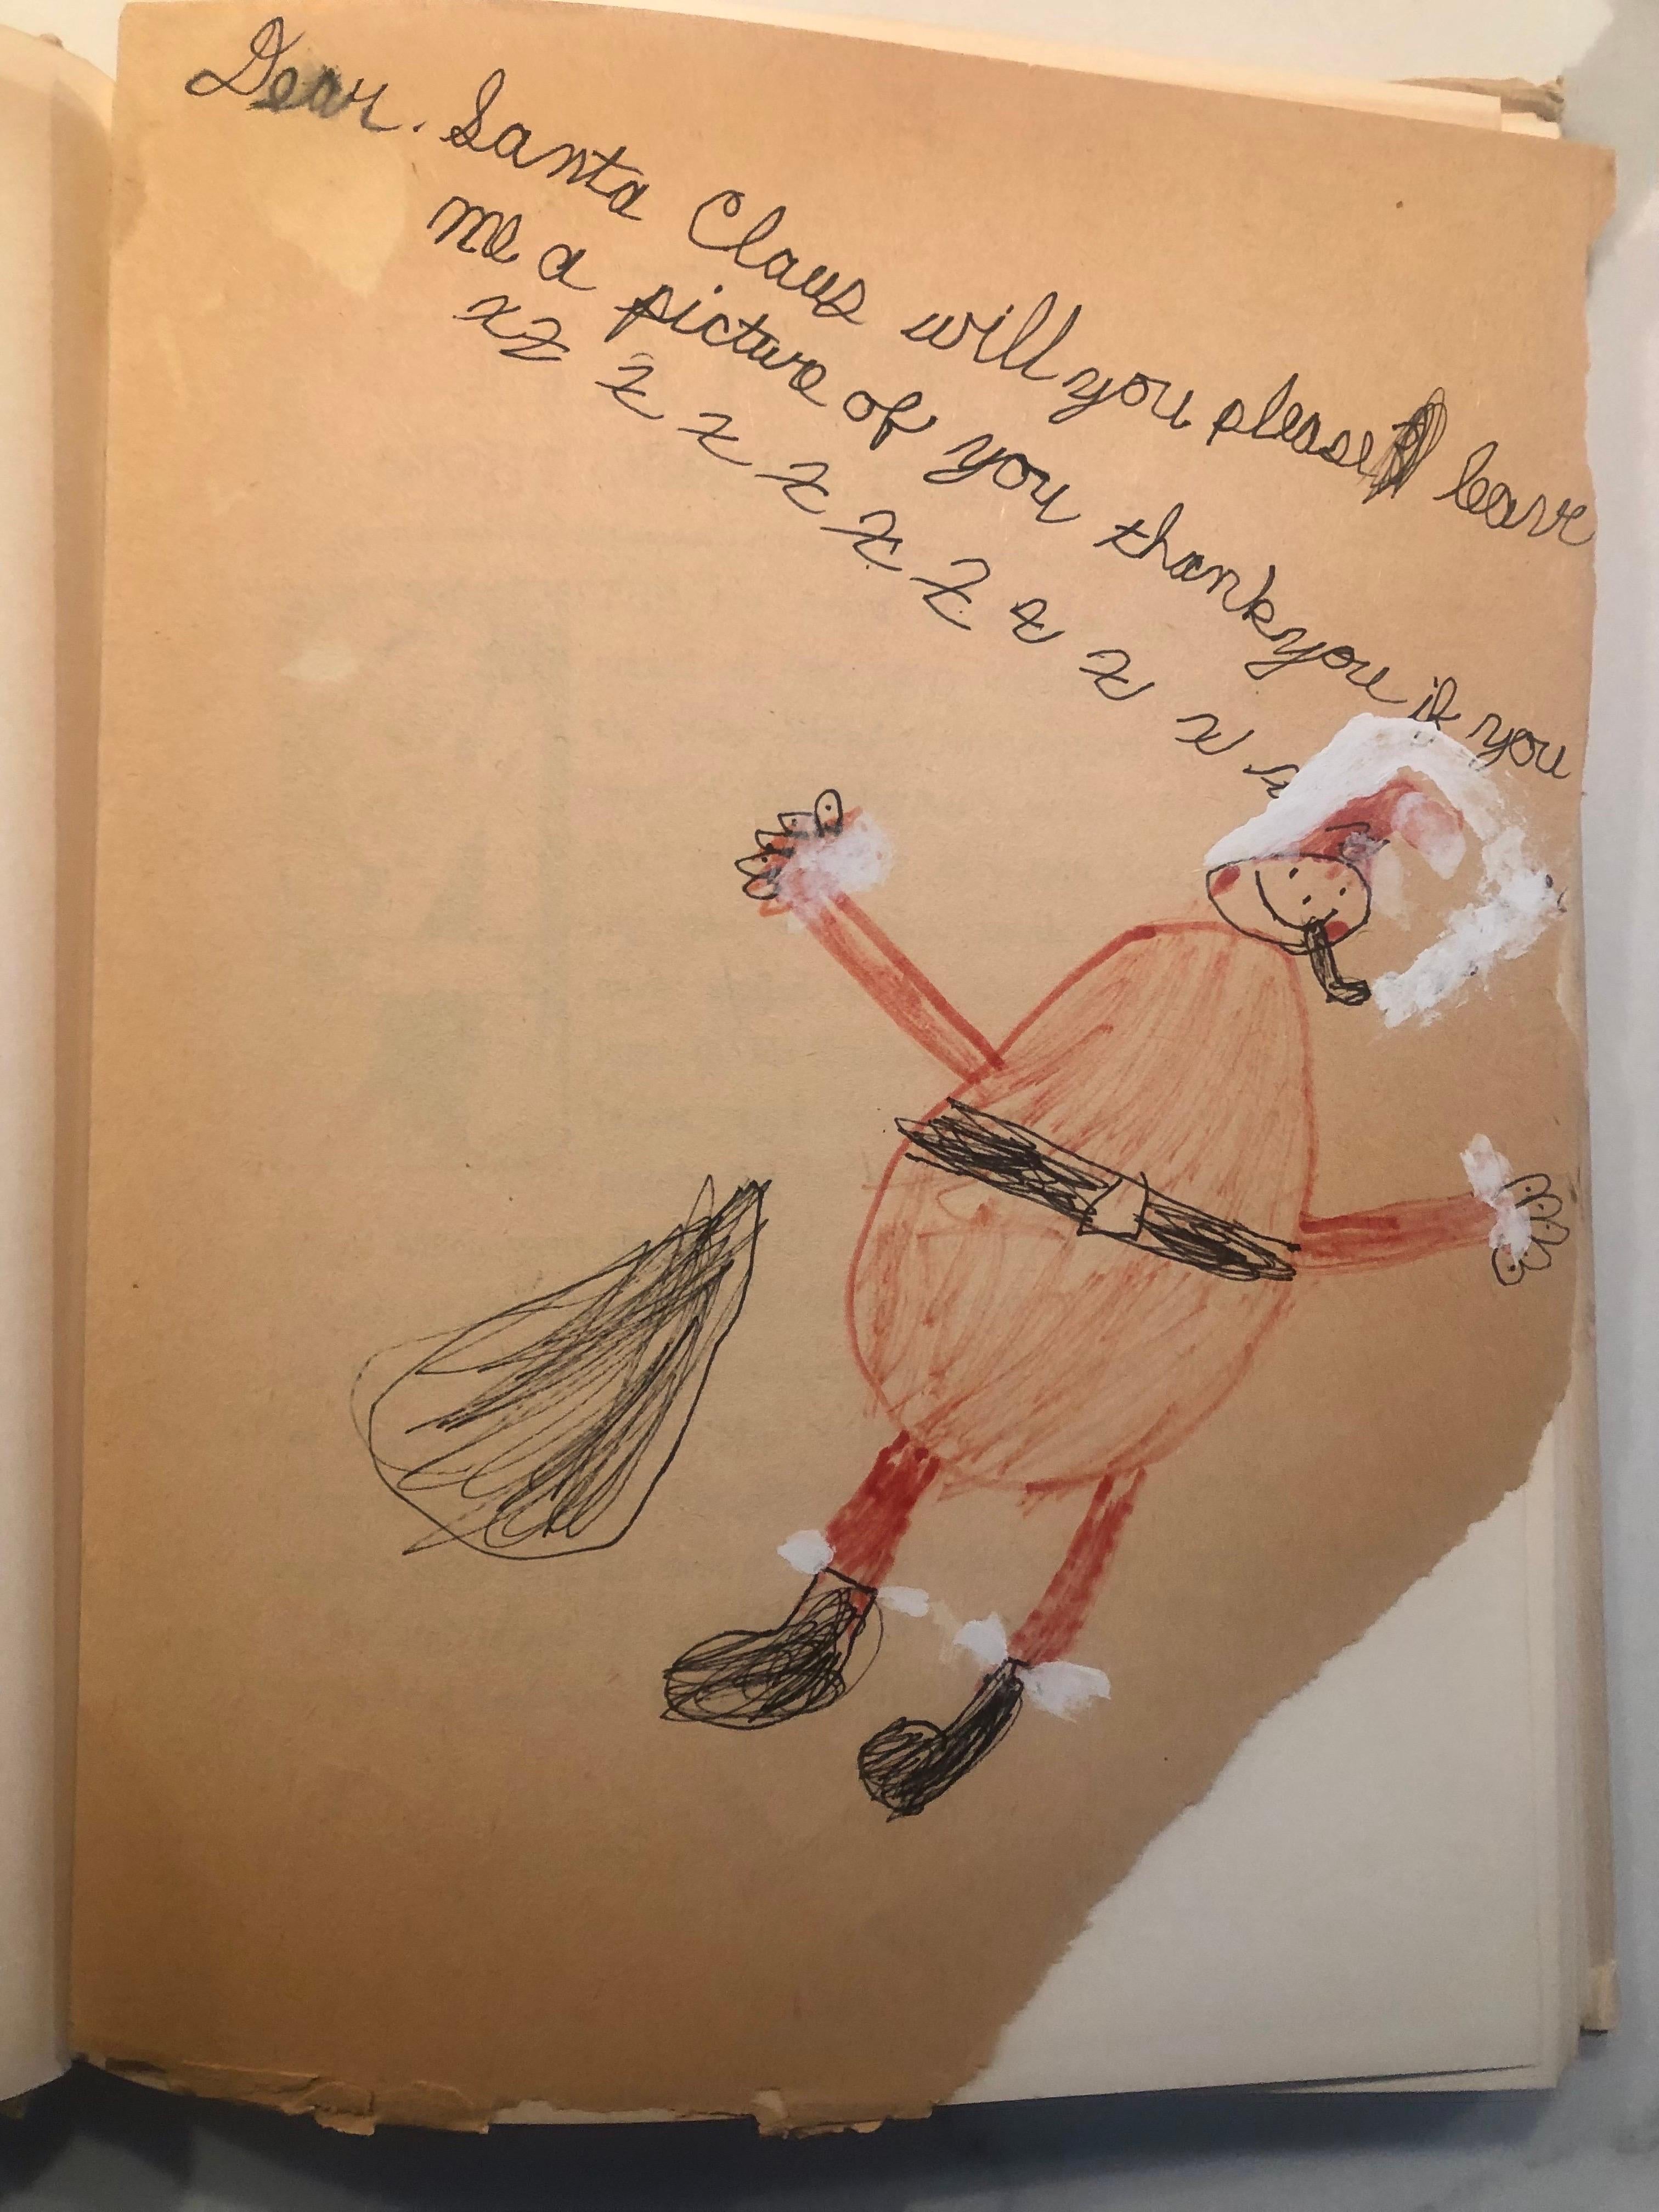 Dear. Santa Claus will you please leave
me a picture of you thank you if you
x x x x x x x x x x x